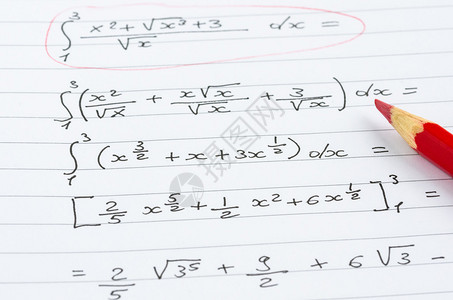 ∫₁³ (x² + √x³ + 3)/√x dx =
∫₁³ (x²/√x + x√x/√x + 3/√x) dx =
∫₁³ (x^(3/2) + x + 3x^(1/2)) dx =
[2/5 x^(5/2) + 1/2 x² + 6x^(1/2)]₁³ =
= 2/5 √3⁵ + 9/2 + 6√3 -